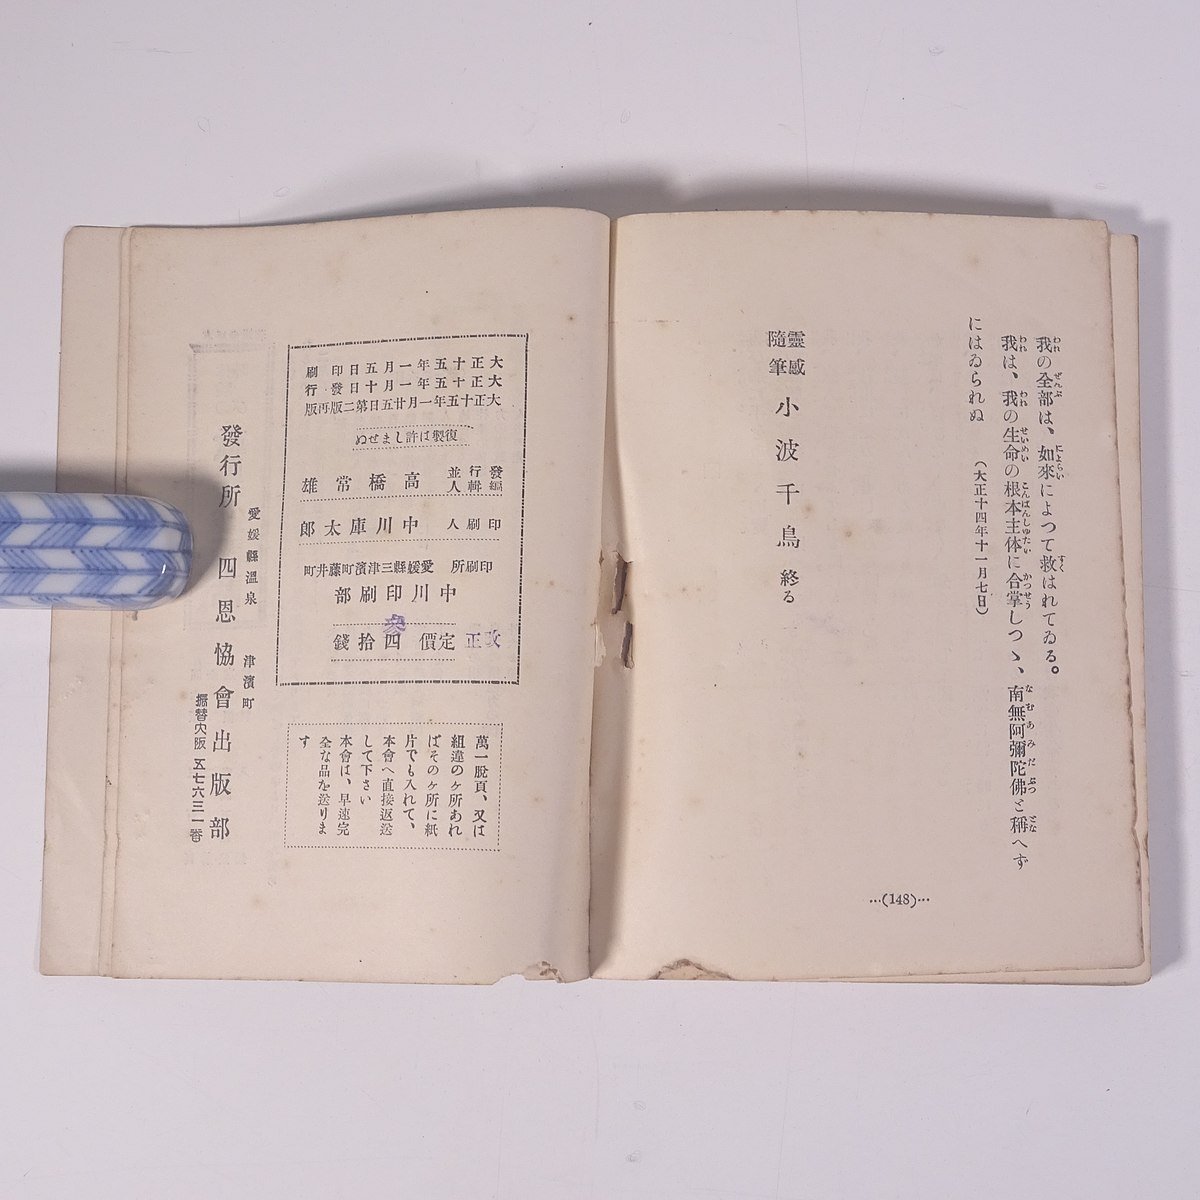 我の全部は、如來によつて救はれてゐる。
我は、我の生命の根本主体に合掌しつゝ、南無阿彌陀佛と稱へず
にはゐられぬ
(大正十四年十一月七日)
靈感
隨筆
小波千鳥 終る
…(148)…
大正十五年一月五日印刷
大正十五年一月十日發行
大正十五年一月廿五日第二版再版
復製は許しませぬ
發行並
編輯人
高橋常雄
印刷人 中川庫太郎
印刷所 愛媛縣三津濱町藤井町
中川印刷部
改正 定價 四拾錢
參
萬一脫頁、又は
組違のヶ所あれ
ばそのヶ所に紙
片でも入れて、
本會へ直接返送
して下さい
本會は、早速完
全な品を送りま
す
愛媛縣溫泉
津濱町
發行所 四恩協會出版部
振替大阪 五七六三一番